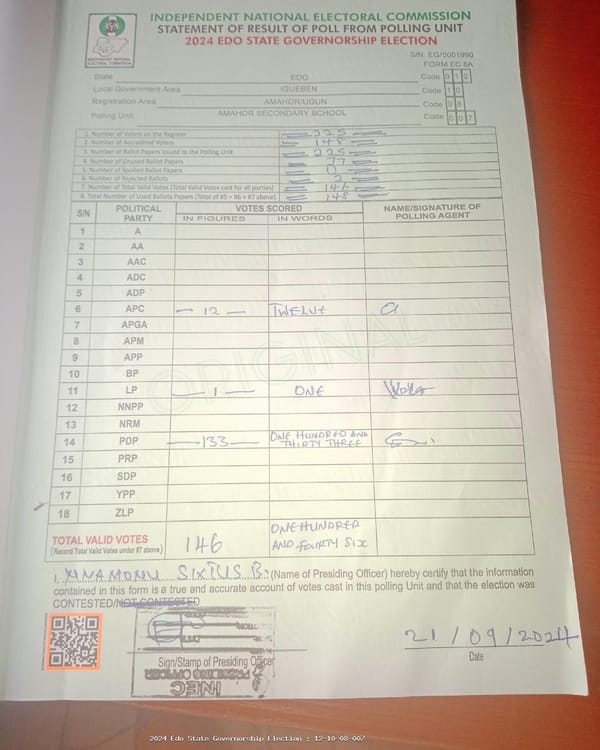 INDEPENDENT NATIONAL ELECTORAL COMMISSION
STATEMENT OF RESULT OF POLL FROM POLLING UNIT
2024 EDO STATE GOVERNORSHIP ELECTION
S/N: EG/0001990
FORM EC 8A
State EDO Code 012
Local Government Area IGUEBEN Code 10
Registration Area AMAHOR/UGUN Code 08
Polling Unit AMAHOR SECONDARY SCHOOL Code 007
1. Number of Voters on the Register 225
2. Number of Accredited Voters 148
3. Number of Ballot Papers Issued to the Polling Unit 225
4. Number of Unused Ballot Papers 77
5. Number of Spoiled Ballot Papers 0
6. Number of Rejected Ballots 2
7. Number of Total Valid Votes (Total Valid Votes cast for all parties) 146
8. Total Number of Used Ballots Papers (Total of #5 + #6 + #7 above) 148
S/N POLITICAL PARTY VOTES SCORED NAME/SIGNATURE OF POLLING AGENT
IN FIGURES IN WORDS
1 A
2 AA
3 AAC
4 ADC
5 ADP
6 APC 12 TWELVE
7 APGA
8 APM
9 APP
10 BP
11 LP 1 ONE
12 NNPP
13 NRM
14 PDP 133 ONE HUNDRED AND THIRTY THREE
15 PRP
16 SDP
17 YPP
18 ZLP
ORIGINAL
TOTAL VALID VOTES 146 ONE HUNDRED
(Record Total Valid Votes under #7 above) AND FOURTY SIX
I, SIXTUS B. (Name of Presiding Officer) hereby certify that the information
contained in this form is a true and accurate account of votes cast in this polling Unit and that the election was
CONTESTED/NOT CONTESTED
21/09/2024
Sign/Stamp of Presiding Officer Date
PRESIDING OFFICER
INEC
2024 Edo State Governorship Election : 12-10-08-007